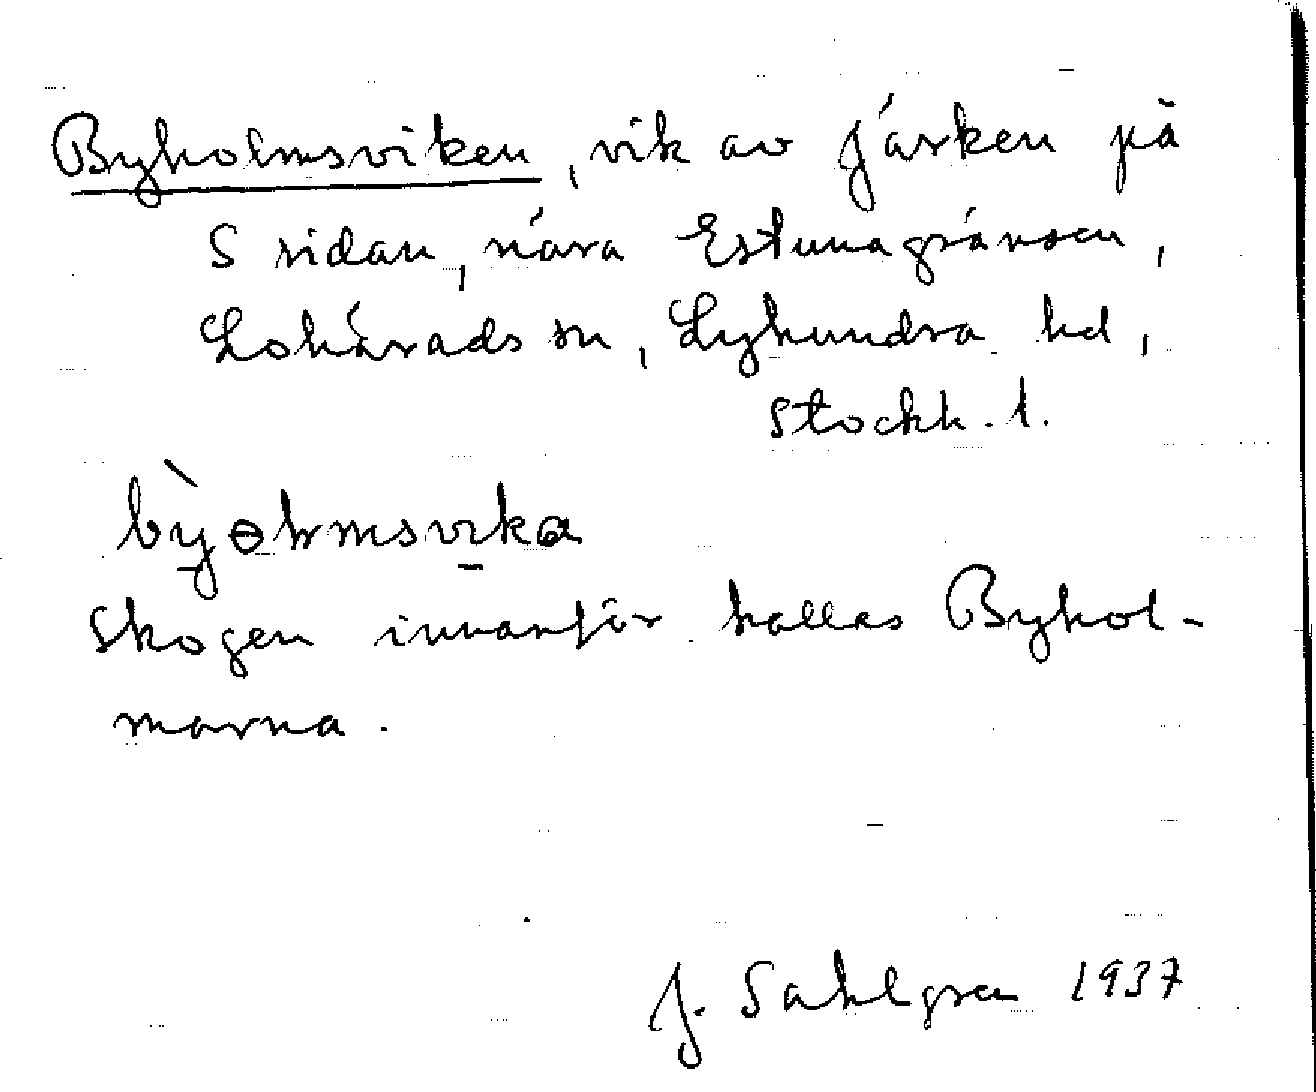 Byholmsviken, vik av Järken på
S sidan, nära Estunagränsen,
Lohärads sn, Lyhundra hd,
Stockh. l.
bỳɵhmsvika
Skogen innanför kallas Byhol-
marna.
J. Sahlgren 1937